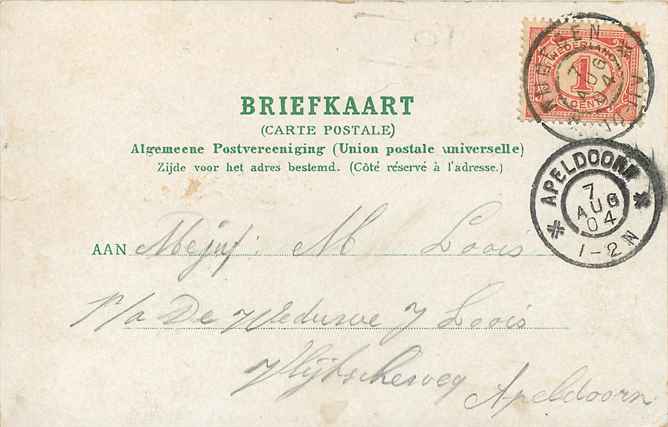 NEDERLAND
1
CENT
7 AUG 04
BRIEFKAART
(CARTE POSTALE)
Algemeene Postvereeniging (Union postale universelle)
Zijde voor het adres bestemd. (Côté réservé à l'adresse.)
APELDOORN
7
AUG
04
1-2 N
AAN Mejuf: M Loois
p/a De Weduwe J Loois
Apeldoorn